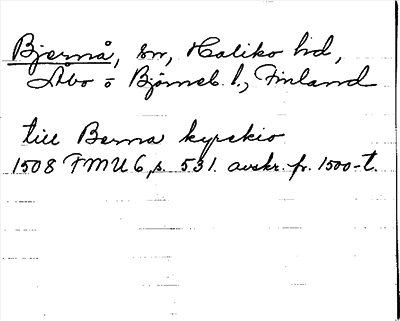 Bjärnå, sn, Haliko hd,
Åbo o Björneb. l., Finland
till Berna kyrekio
1508 FMU 6, s. 531. avskr. fr. 1500-t.